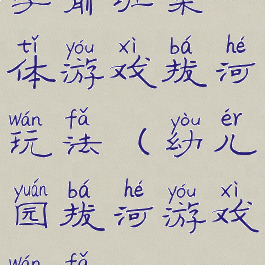 学前班集
tǐ yóu xì bá hé
体游戏拔河
wán fǎ yòu ér
玩法（幼儿
yuán bá hé yóu xì
园拔河游戏
wán fǎ